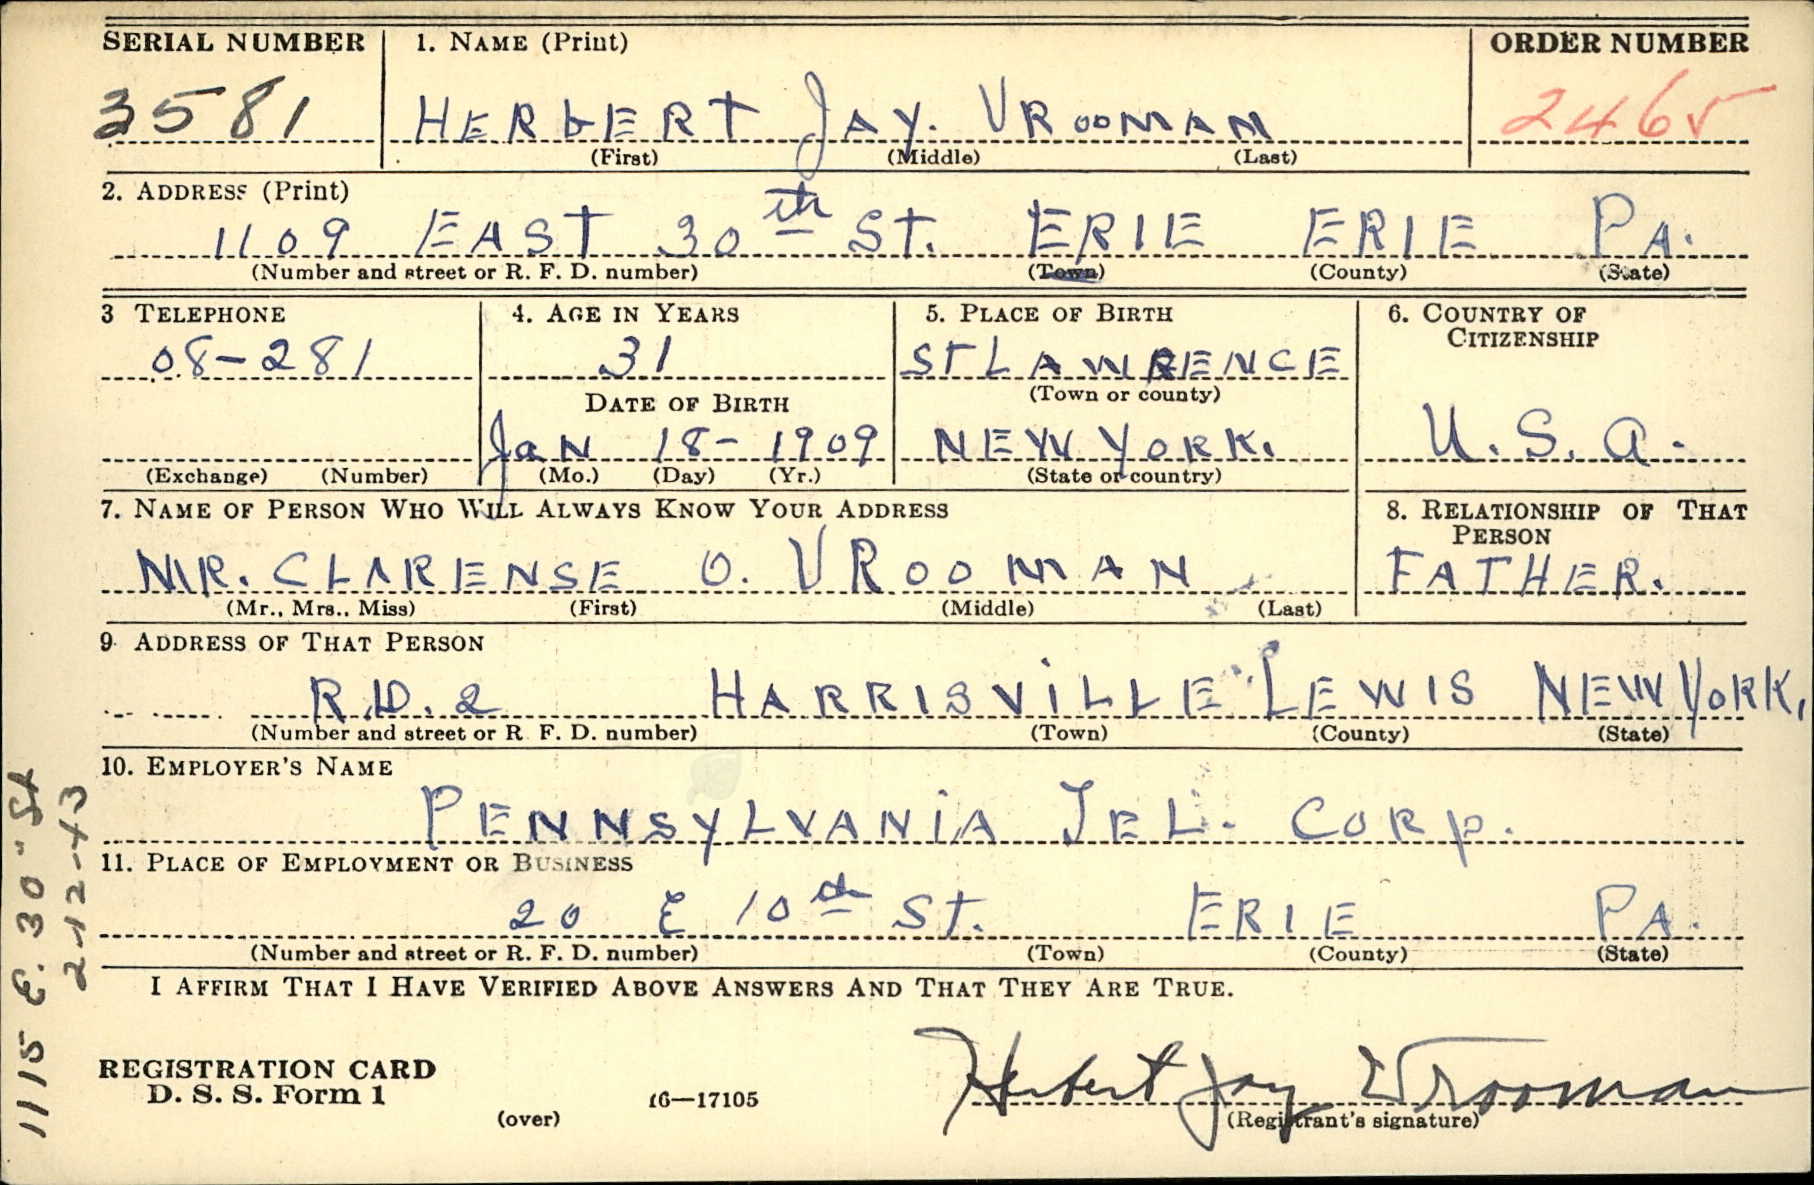 SERIAL NUMBER 1. NAME (Print) ORDER NUMBER
3581 HERBERT JAY. VROOMAN 2465
(First) (Middle) (Last)
2. ADDRESS (Print)
1109 EAST 30th ST. ERIE ERIE PA.
(Number and street or R. F. D. number) (Town) (County) (State)
3 TELEPHONE 4. AGE IN YEARS 5. PLACE OF BIRTH 6. COUNTRY OF
CITIZENSHIP
08-281 31 ST LAWRENCE
DATE OF BIRTH (Town or county)
Jan 18- 1909 NEW YORK. U. S. A.
(Exchange) (Number) (Mo.) (Day) (Yr.) (State or country)
7. NAME OF PERSON WHO WILL ALWAYS KNOW YOUR ADDRESS 8. RELATIONSHIP OF THAT
PERSON
MR. CLARENSE O. VROOMAN FATHER.
(Mr., Mrs., Miss) (First) (Middle) (Last)
9. ADDRESS OF THAT PERSON
R.D. 2 HARRISVILLE LEWIS NEW YORK,
(Number and street or R. F. D. number) (Town) (County) (State)
10. EMPLOYER'S NAME
PENNSYLVANIA TEL. CORP.
11. PLACE OF EMPLOYMENT OR BUSINESS
20 E 10th ST. ERIE PA.
(Number and street or R. F. D. number) (Town) (County) (State)
I AFFIRM THAT I HAVE VERIFIED ABOVE ANSWERS AND THAT THEY ARE TRUE.
REGISTRATION CARD
D. S. S. Form 1
(over) 16—17105
Herbert Jay Vrooman
(Registrant's signature)
1115 E. 30" St
2-12-43